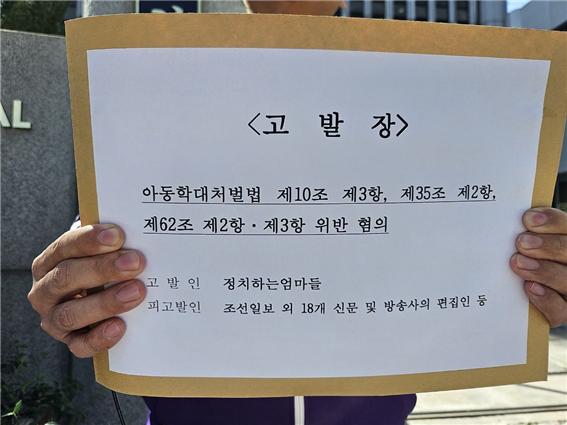 AL
<고 발 장>
아동학대처벌법 제10조 제3항, 제35조 제2항,
제62조 제2항·제3항 위반 혐의
고 발 인 정치하는엄마들
피고발인 조선일보 외 18개 신문 및 방송사의 편집인 등